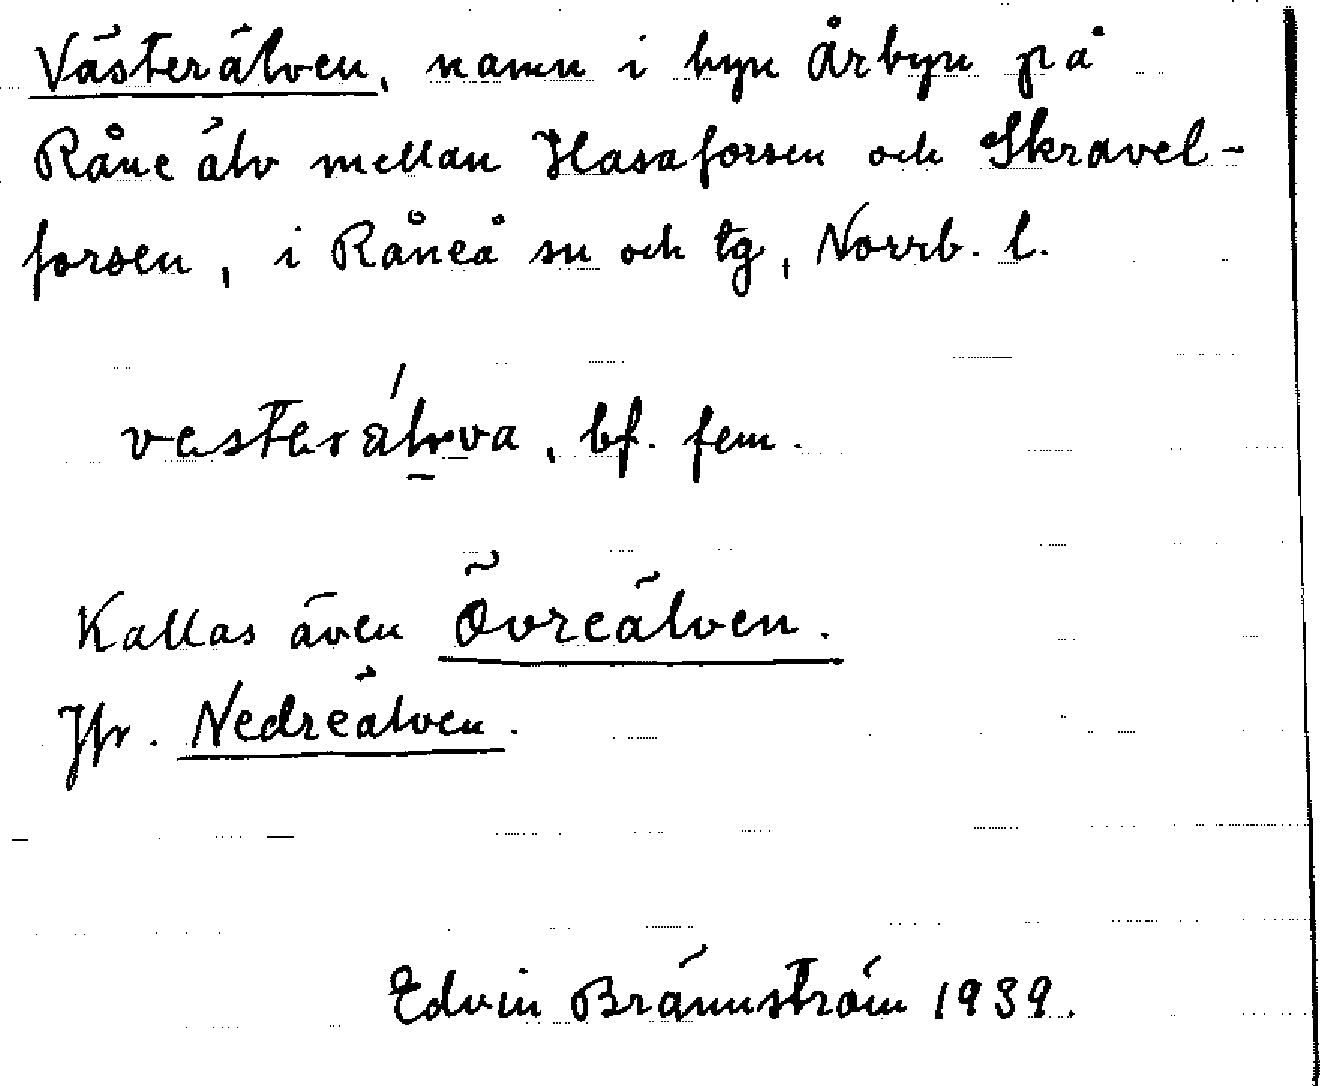 Västerälven, namn i byn Årbyn på
Råne älv mellan Hasaforsen och Skravel-
forsen, i Råneå sn och tg, Norrb. l.
bf. fem.
Kallas även Övreälven.
Jfr. Nedreälven.
Edvin Brännström 1939.